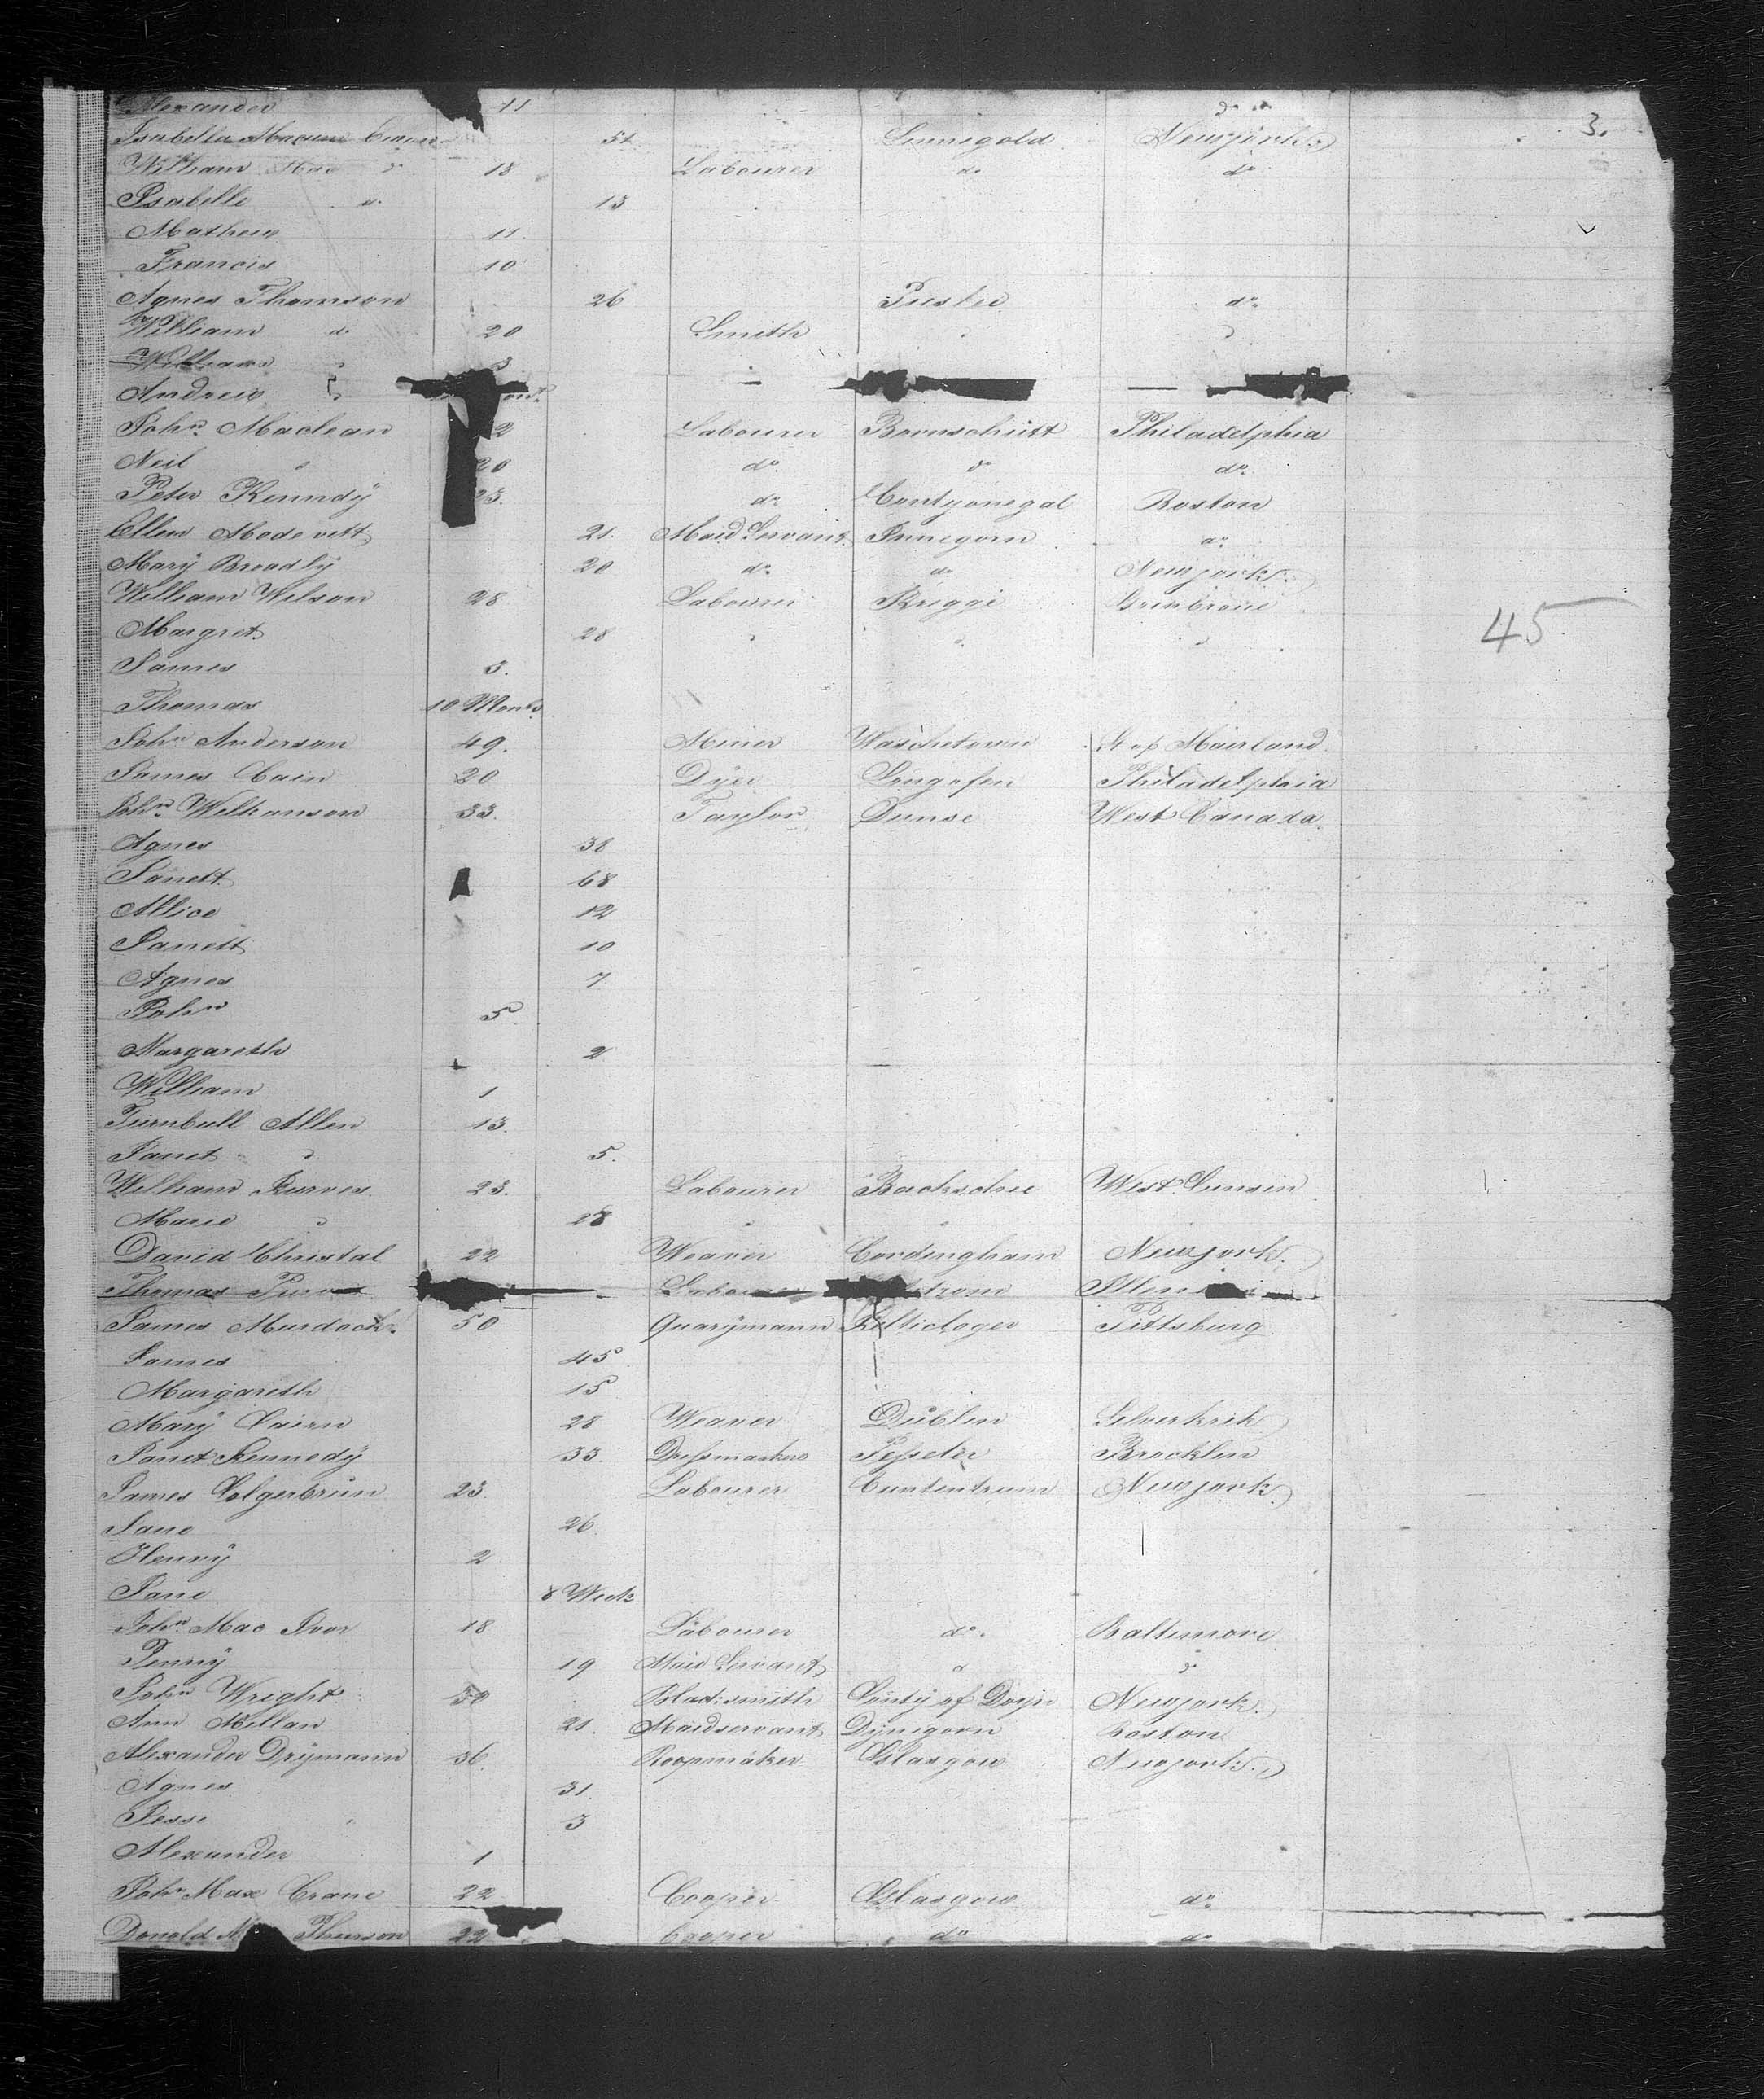 Alexander 11 do 3.
Isabella 51 Sunnegold Newjork
William Mac do 18 Labourer do do
Isabelle do 13
Mathew 11
Francis 10
Agnes Thomson 26 do
William do 20 Smith
William 3
Andrew
John Maclean 2 Labourer Bornschütt Philadelphia
Neil 20 do do do
Peter Kenndÿ 23. do Contyonegal Boston
Ellen 21. Maid Servant Innegorn do
Marÿ Broadlÿ 20 do do Newjork
William Wilson 28 Labourer Kriggi
Margret 28 45
James 3.
Thomas 10 Months
John Anderson 49. Miner Waschetown St of Mäerland
James Cain 20 Dÿer Philadelphia
John Wilkonson 33. Taylor Dunse West Canada
Agnes 38
Janett 68
Allice 12
Janett 10
Agnes 7
John 5
Margareth 2
William 1
Turnbull Allen 13.
Janet 5.
William Purves 23. Labourer Backschu West Cunsin
Marie 28
David Christal 22 Weaver Cordingham Newjork
Thomas Labourer
James Murdock 50 Quarÿmann Pittsburg
James 45
Margareth 15
Marÿ Cairn 28 Weaver Dublin Selverkrik
Janet Kennedÿ 33. Dressmaker Brocklin
James 23 Labourer Cuntentrum Newjork
Jane 26
Henrÿ 2
Jane 8 Week
John Mac Ivor 18 Labourer do Baltimore
Pennÿ 19 Maid Servant do do
John Wright Blacksmith Contÿ of Newjork
Ann Millan 21. Maidservant Dÿnigorn Boston
Alexander Drÿmann 36. Roopmaker Glasgow Newjork
Agnes 31.
Jessi 3
Alexander 1
John Mac Crane 22 Cooper Glasgow do
Donald Pherson 22 Cooper do do